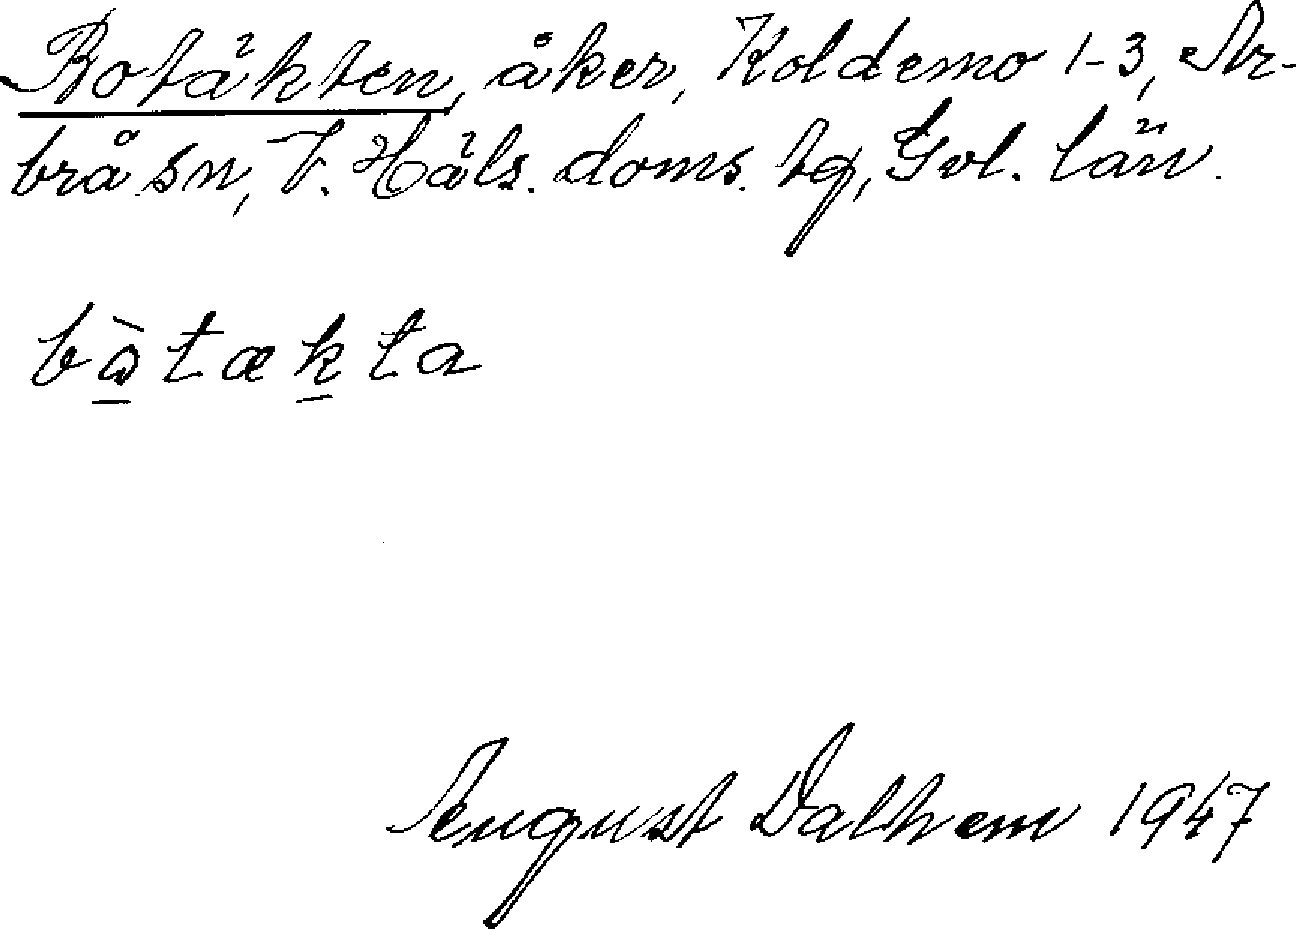 Botäkten, åker, Koldemo 1-3, Ar-
brå sn, V. Häls. doms. tg, Gvl. län.
bɷ̀tækta
August Dalhem 1947